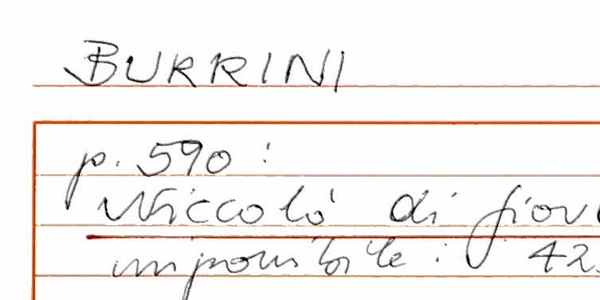 BURRINI
p. 590:
Niccolò di Giov
impossibile: 42